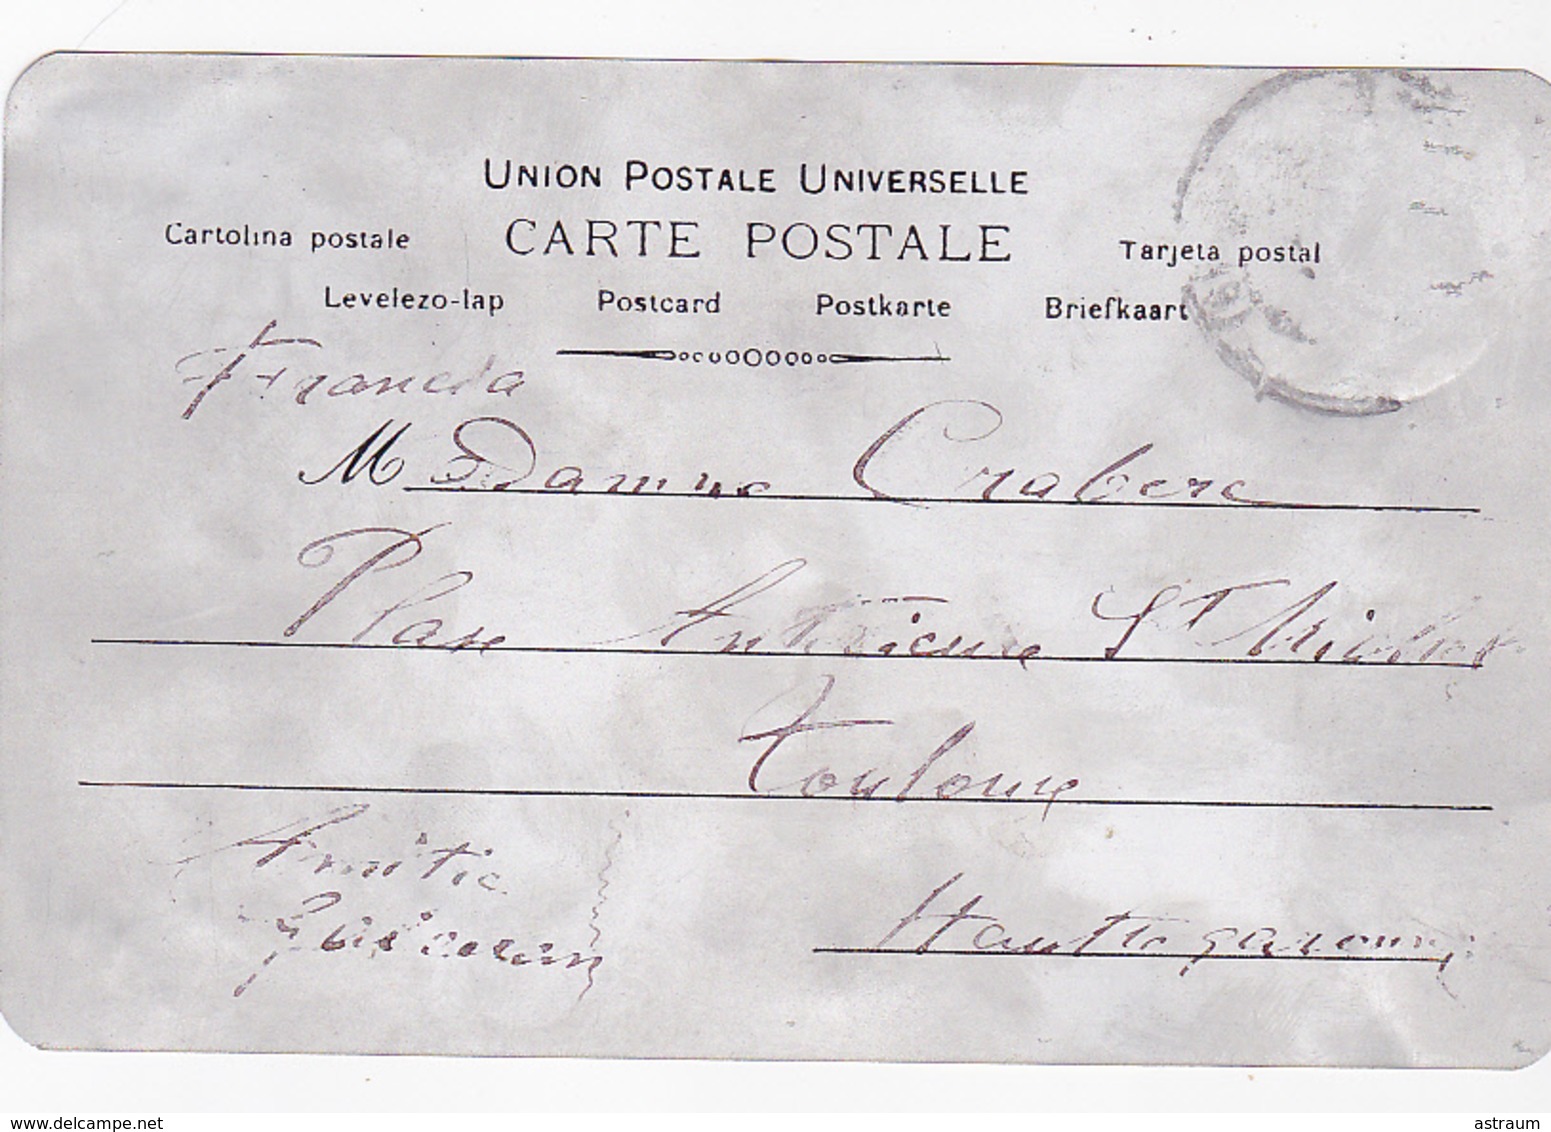 UNION POSTALE UNIVERSELLE
Cartolina postale CARTE POSTALE Tarjeta postal
Levelezo-lap Postcard Postkarte Briefkaart
Francia
Madamme Crabere
Plase Antérieure St Nicolas
Toulouse
Amitié
Haute garonne
delcampe.net
astraum